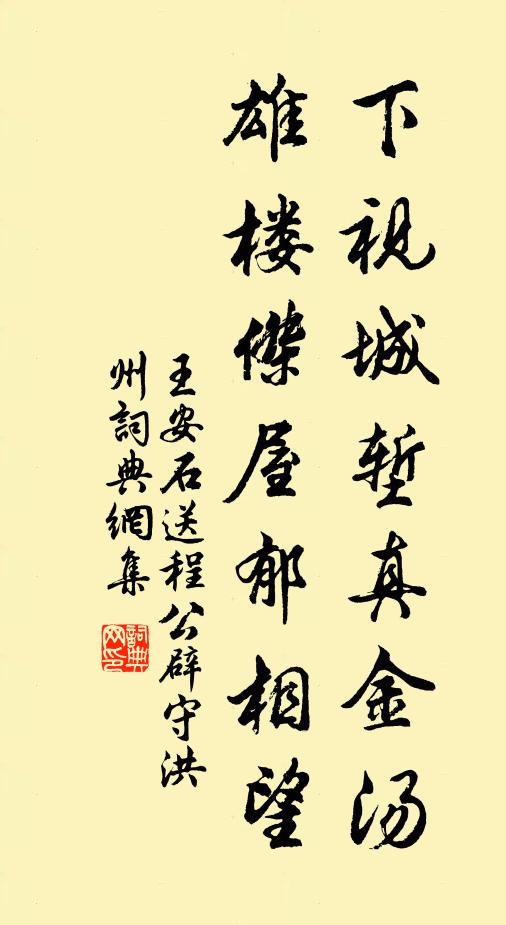 下视城堑真金汤
雄楼傑屋郁相望
王安石送程公辟守洪
州詞典網集
詞典
网印